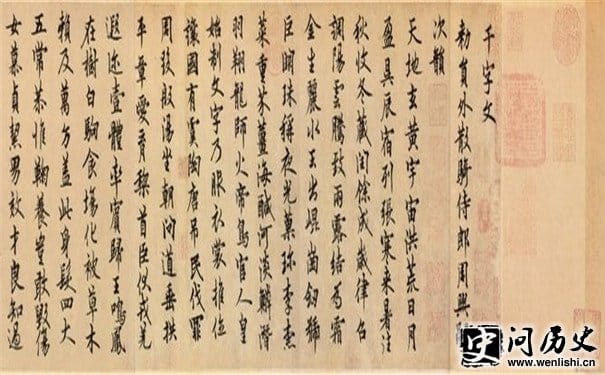 千字文
勑員外散騎侍郎周興
次韻
天地玄黃宇宙洪荒日月
盈昃辰宿列張寒來暑往
秋收冬藏閏餘成歲律召
調陽雲騰致雨露結為霜
金生麗水玉出崐崗釰號
巨闕珠稱夜光菓珍李柰
菜重芥薑海鹹河淡鱗潛
羽翔龍師火帝鳥官人皇
始制文字乃服衣裳推位
讓國有虞陶唐弔民伐罪
周發殷湯坐朝問道垂拱
平章愛育黎首臣伏戎羌
遐迩壹體率賓歸王鳴鳳
在樹白駒食場化被草木
賴及萬方蓋此身髮四大
五常恭惟鞠養豈敢毀傷
女慕貞絜男效才良知過
史 问历史
www.wenlishi.com